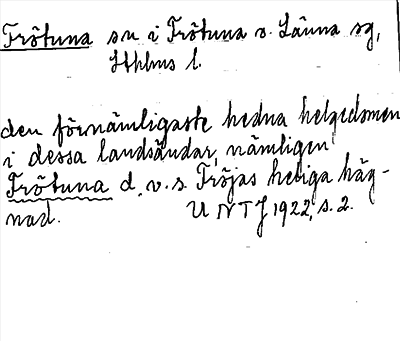 Frötuna sn i Frötuna o. Länna sg,
Sthlms l.
den förnämligaste hedna helgedomen
i dessa landsändar, nämligen
Frötuna d. v. s. Fröjas heliga häg-
nad. UNTJ 1922, s. 2.